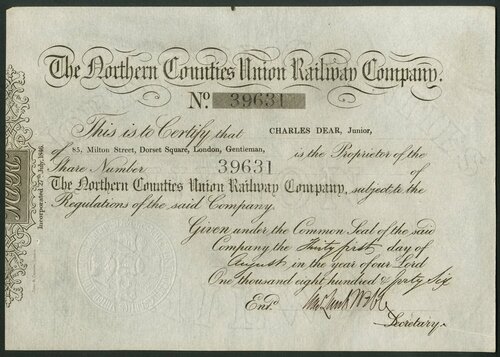 The Northern Counties Union Railway Company.
No. 39631
This is to Certify that CHARLES DEAR, Junior,
of 85, Milton Street, Dorset Square, London, Gentleman, is the Proprietor of the
Share Number 39631 of
The Northern Counties Union Railway Company, subject to the
Regulations of the said Company.
Given under the Common Seal of the said
Company the Thirty first day of
August in the year of our Lord
One thousand eight hundred & forty Six
Entd.
Secretary.
Incorporated 27th July, 1846.